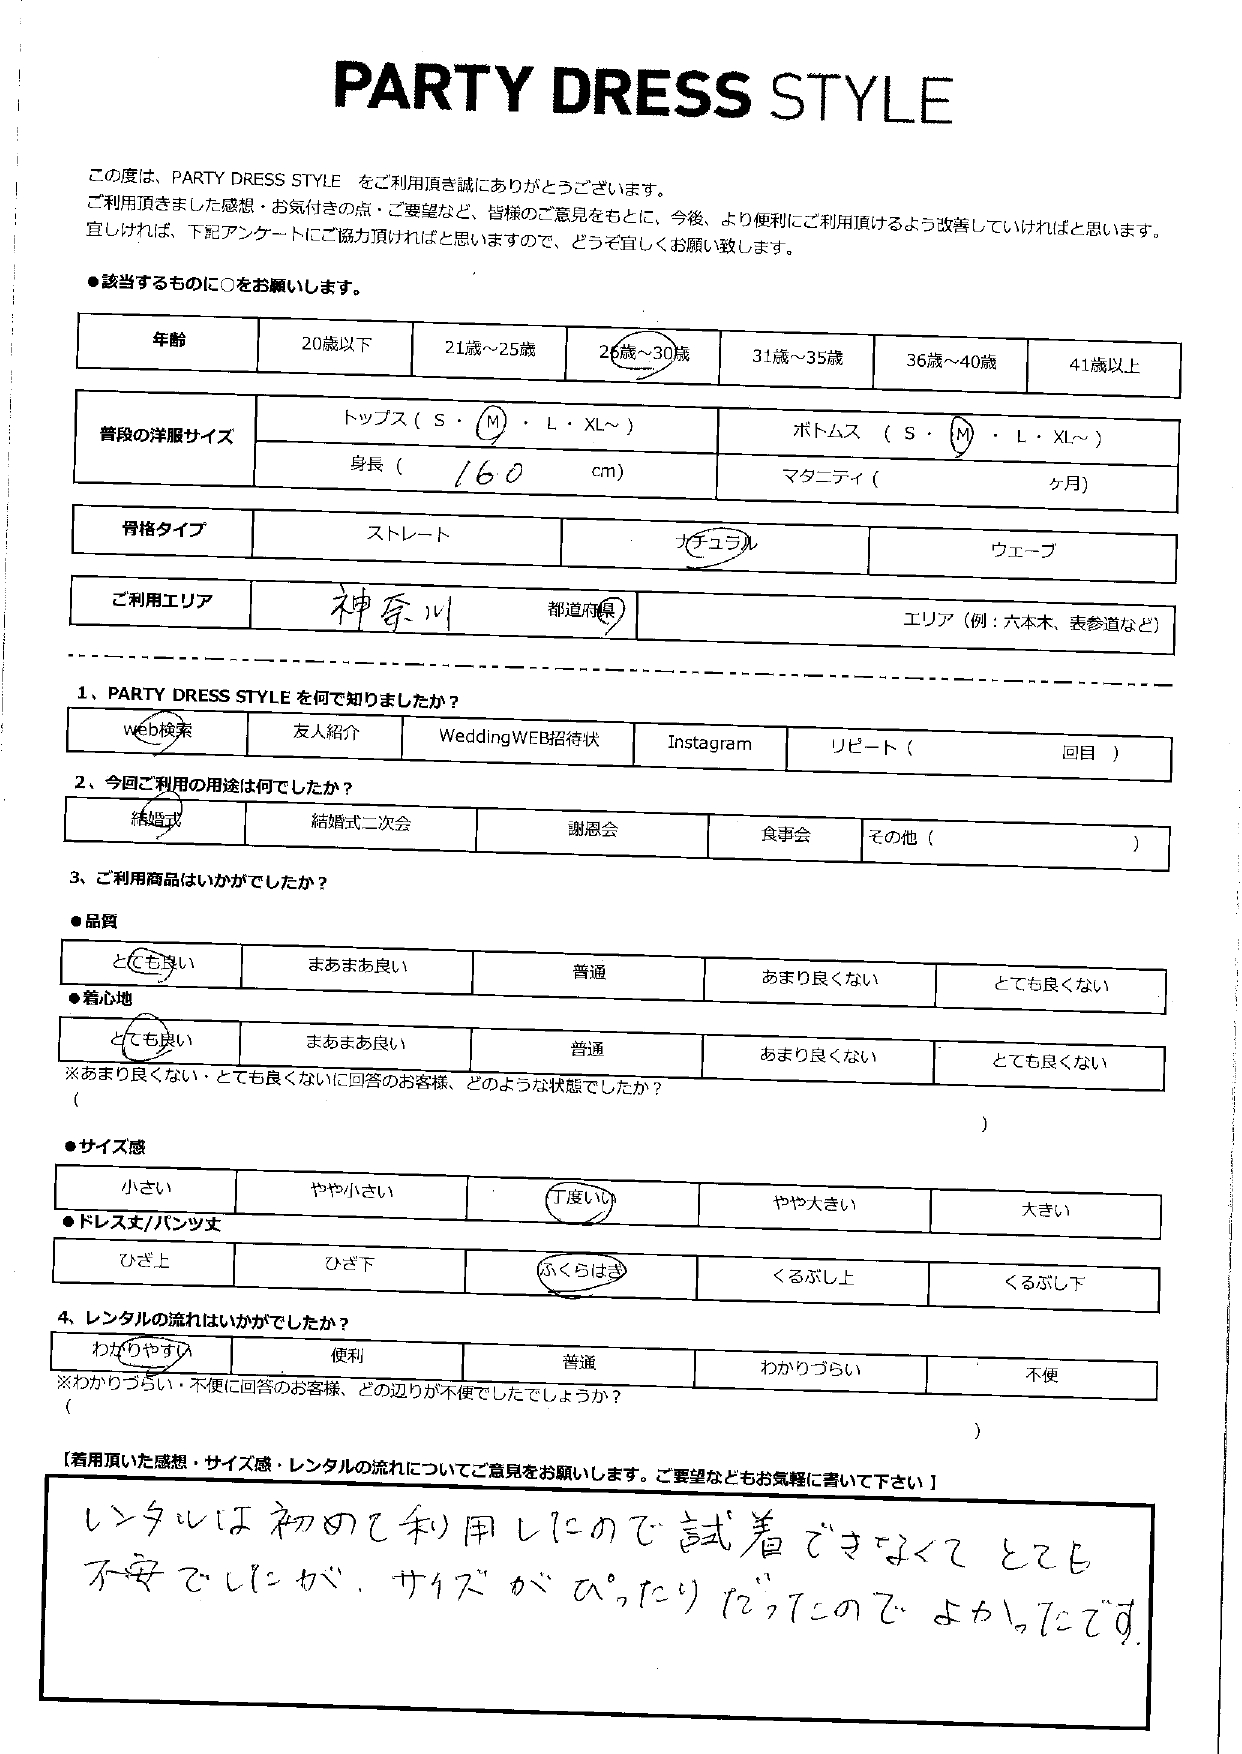 PARTY DRESS STYLE
この度は、PARTY DRESS STYLE をご利用頂き誠にありがとうございます。
ご利用頂きました感想・お気付きの点・ご要望など、皆様のご意見をもとに、今後、より便利にご利用頂けるよう改善していければと思います。
宜しければ、下記アンケートにご協力頂ければと思いますので、どうぞ宜しくお願い致します。
●該当するものに○をお願いします。
年齢 20歳以下 21歳～25歳 26歳～30歳 31歳～35歳 36歳～40歳 41歳以上
普段の洋服サイズ トップス ( S ・ M ・ L ・ XL～ ) ボトムス ( S ・ M ・ L ・ XL～ )
身長 ( 160 cm) マタニティ ( ヶ月)
骨格タイプ ストレート ナチュラル ウェーブ
ご利用エリア 神奈川 都道府県 エリア（例：六本木、表参道など）
1、PARTY DRESS STYLE を何で知りましたか？
web検索 友人紹介 WeddingWEB招待状 Instagram リピート ( 回目 )
2、今回ご利用の用途は何でしたか？
結婚式 結婚式二次会 謝恩会 食事会 その他 ( )
3、ご利用商品はいかがでしたか？
●品質
とても良い まあまあ良い 普通 あまり良くない とても良くない
●着心地
とても良い まあまあ良い 普通 あまり良くない とても良くない
※あまり良くない・とても良くないに回答のお客様、どのような状態でしたか？
( )
●サイズ感
小さい やや小さい 丁度いい やや大きい 大きい
●ドレス丈/パンツ丈
ひざ上 ひざ下 ふくらはぎ くるぶし上 くるぶし下
4、レンタルの流れはいかがでしたか？
わかりやすい 便利 普通 わかりづらい 不便
※わかりづらい・不便に回答のお客様、どの辺りが不便でしたでしょうか？
( )
【着用頂いた感想・サイズ感・レンタルの流れについてご意見をお願いします。ご要望などもお気軽に書いて下さい】
レンタルは初めて利用したので試着できなくてとても
不安でしたが、サイズがぴったりだったのでよかったです.